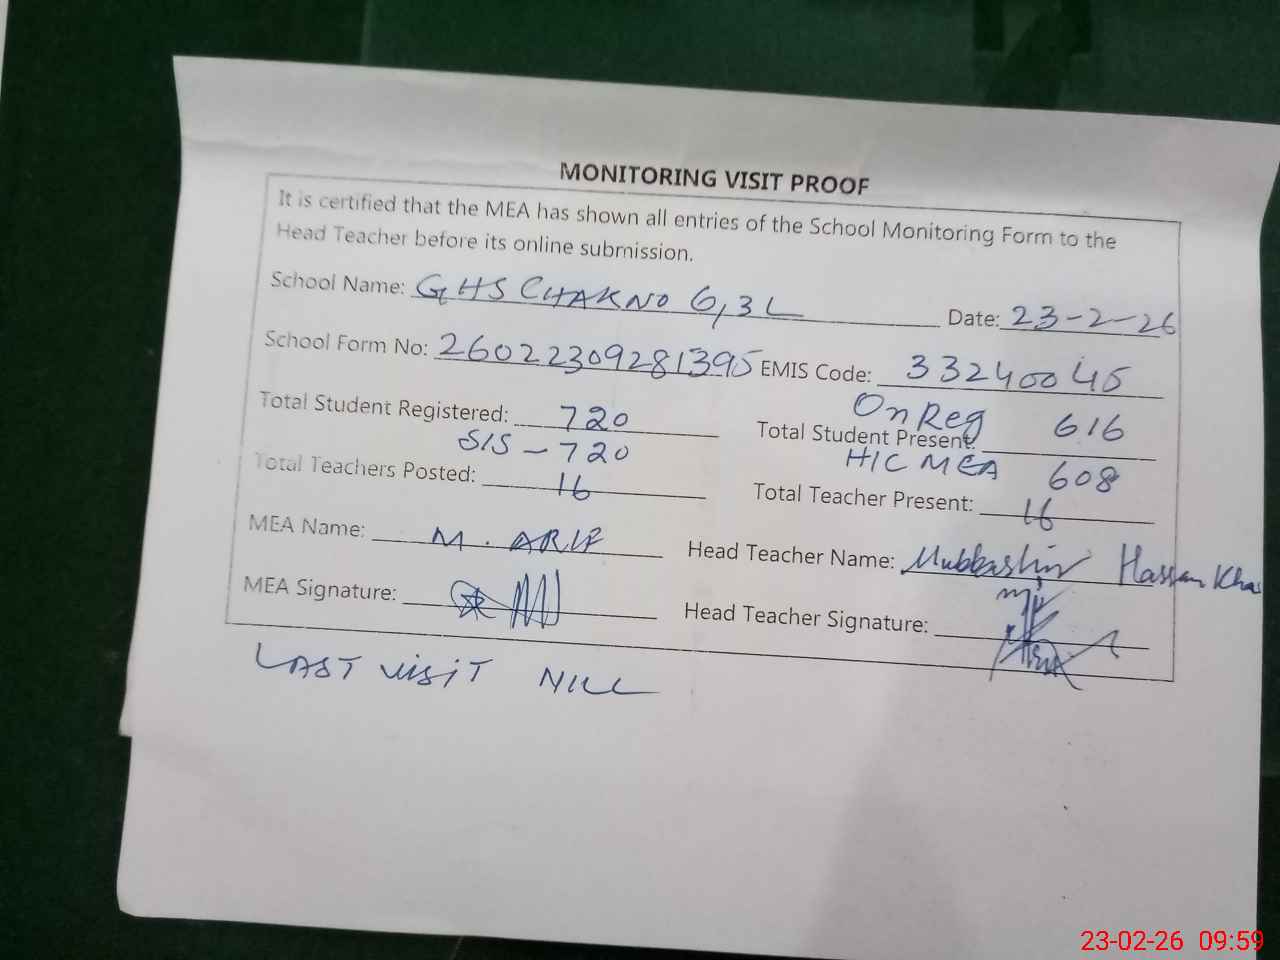 MONITORING VISIT PROOF
It is certified that the MEA has shown all entries of the School Monitoring Form to the
Head Teacher before its online submission.
School Name: GHS CHAK NO 6,3L Date: 23-2-26
School Form No: 26022309281395 EMIS Code: 33240045
On Reg
Total Student Registered: 720 Total Student Present: 616
SIS - 720 H/C MEA 608
Total Teachers Posted: 16 Total Teacher Present: 16
MEA Name: M. ARIF Head Teacher Name: Mubbashir Hassan Kha
MEA Signature: Head Teacher Signature:
LAST VISIT NILL
23-02-26 09:59